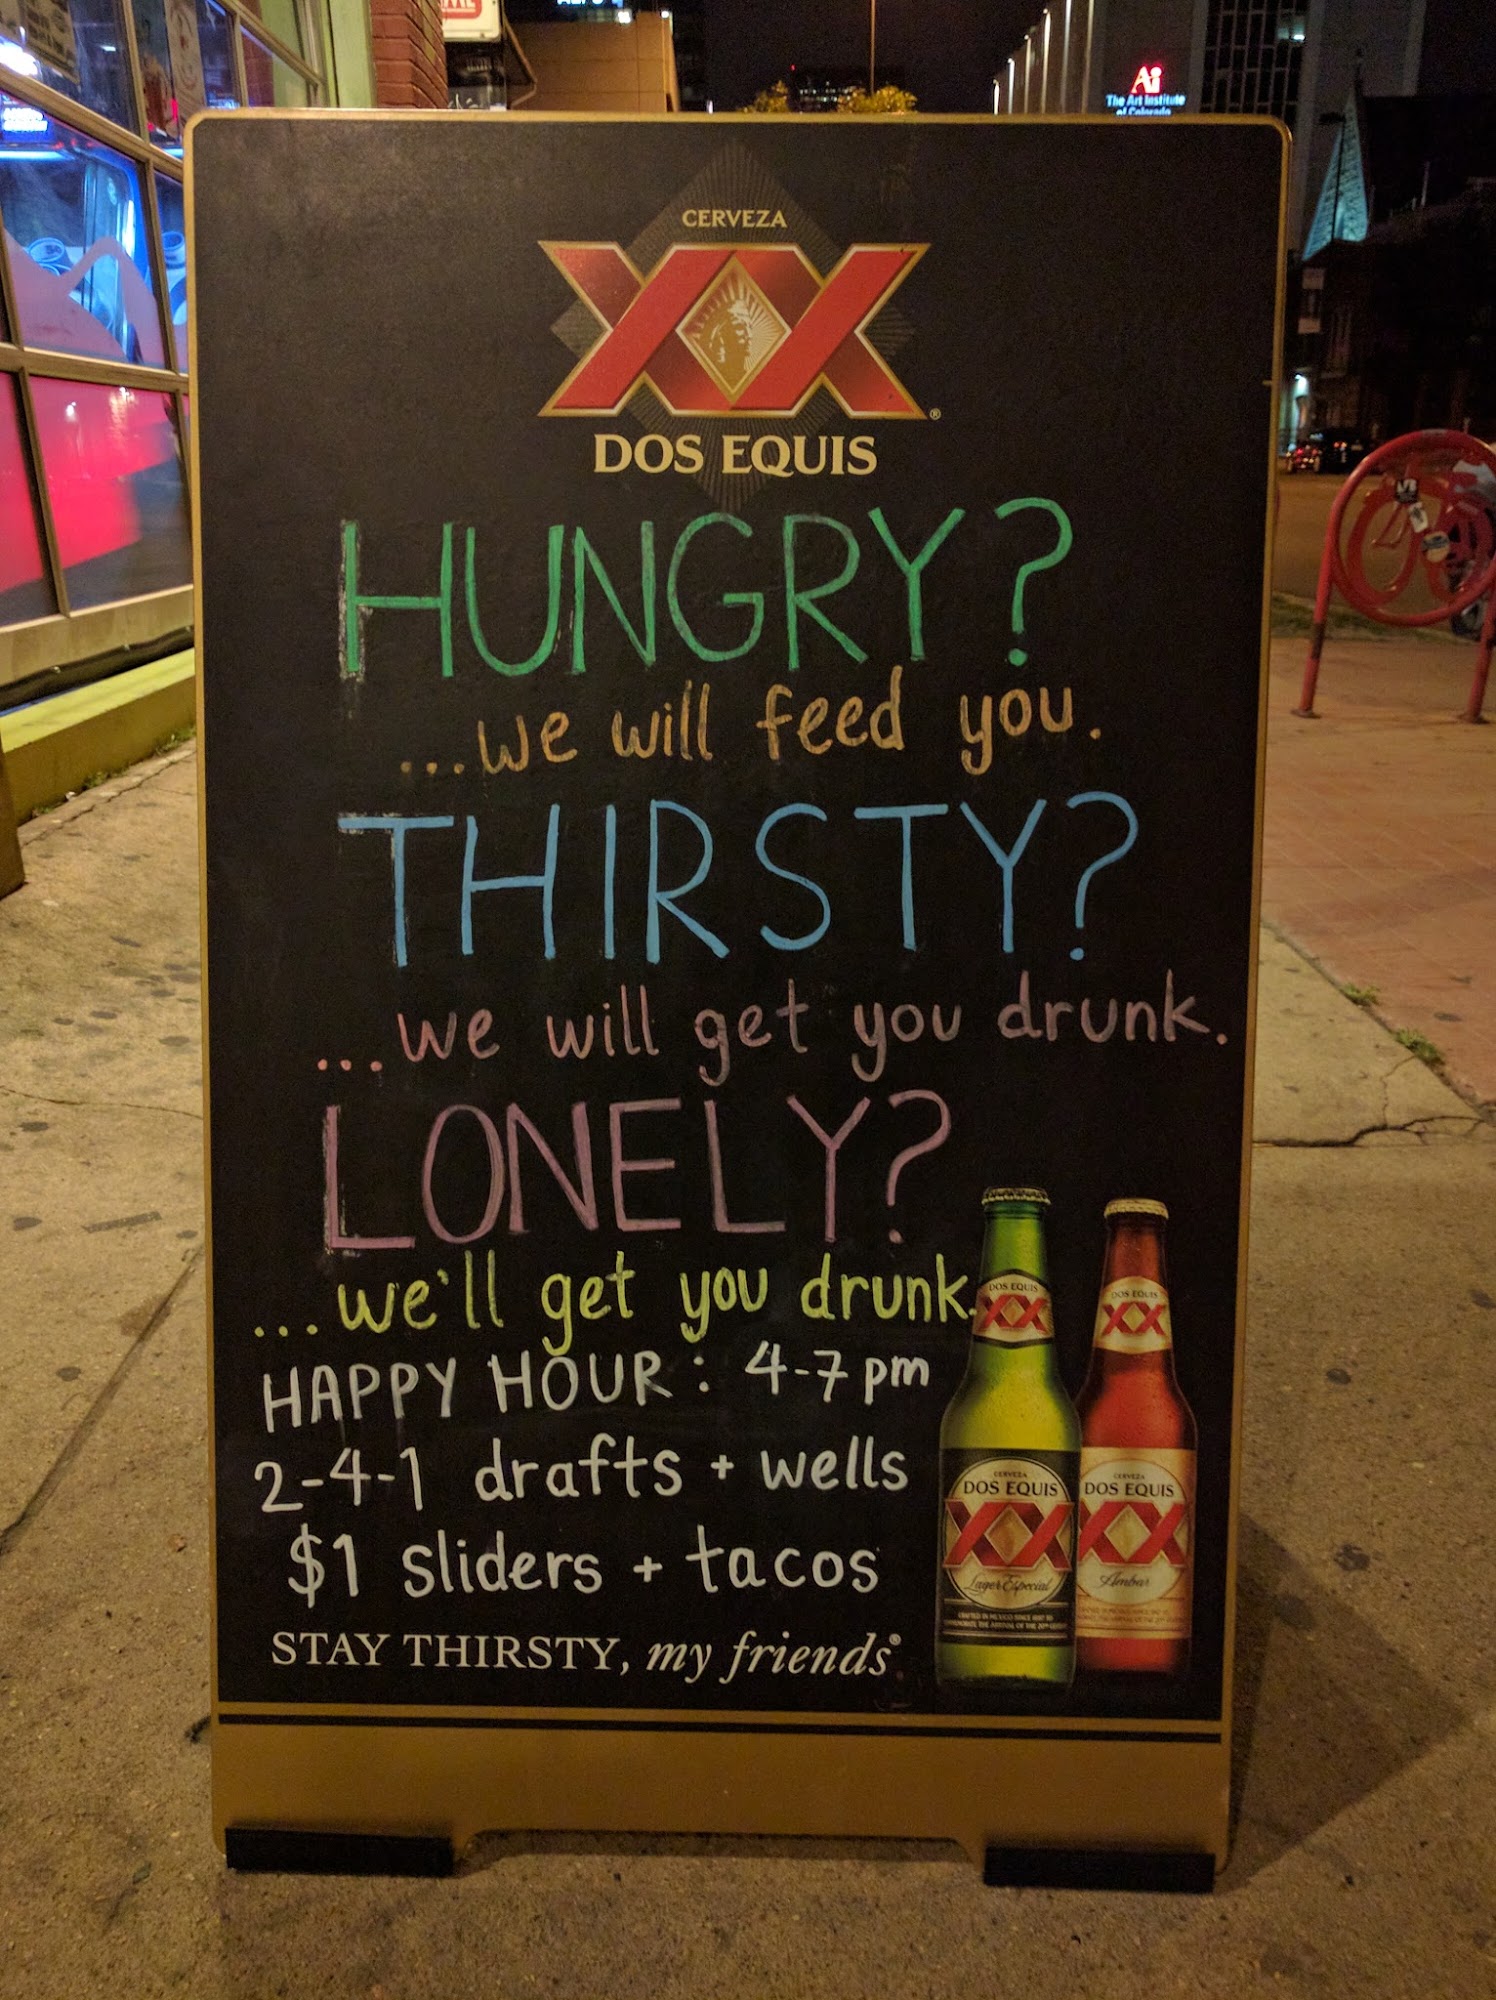 Ai
The Art Institute
of Colorado
CERVEZA
XX
DOS EQUIS
HUNGRY?
...we will feed you.
THIRSTY?
...we will get you drunk.
LONELY?
...we'll get you drunk.
HAPPY HOUR: 4-7pm
2-4-1 drafts + wells
$1 sliders + tacos
STAY THIRSTY, my friends®
DOS EQUIS
XX
CERVEZA
DOS EQUIS
XX
Lager Especial
DOS EQUIS
XX
CERVEZA
DOS EQUIS
XX
Ambar